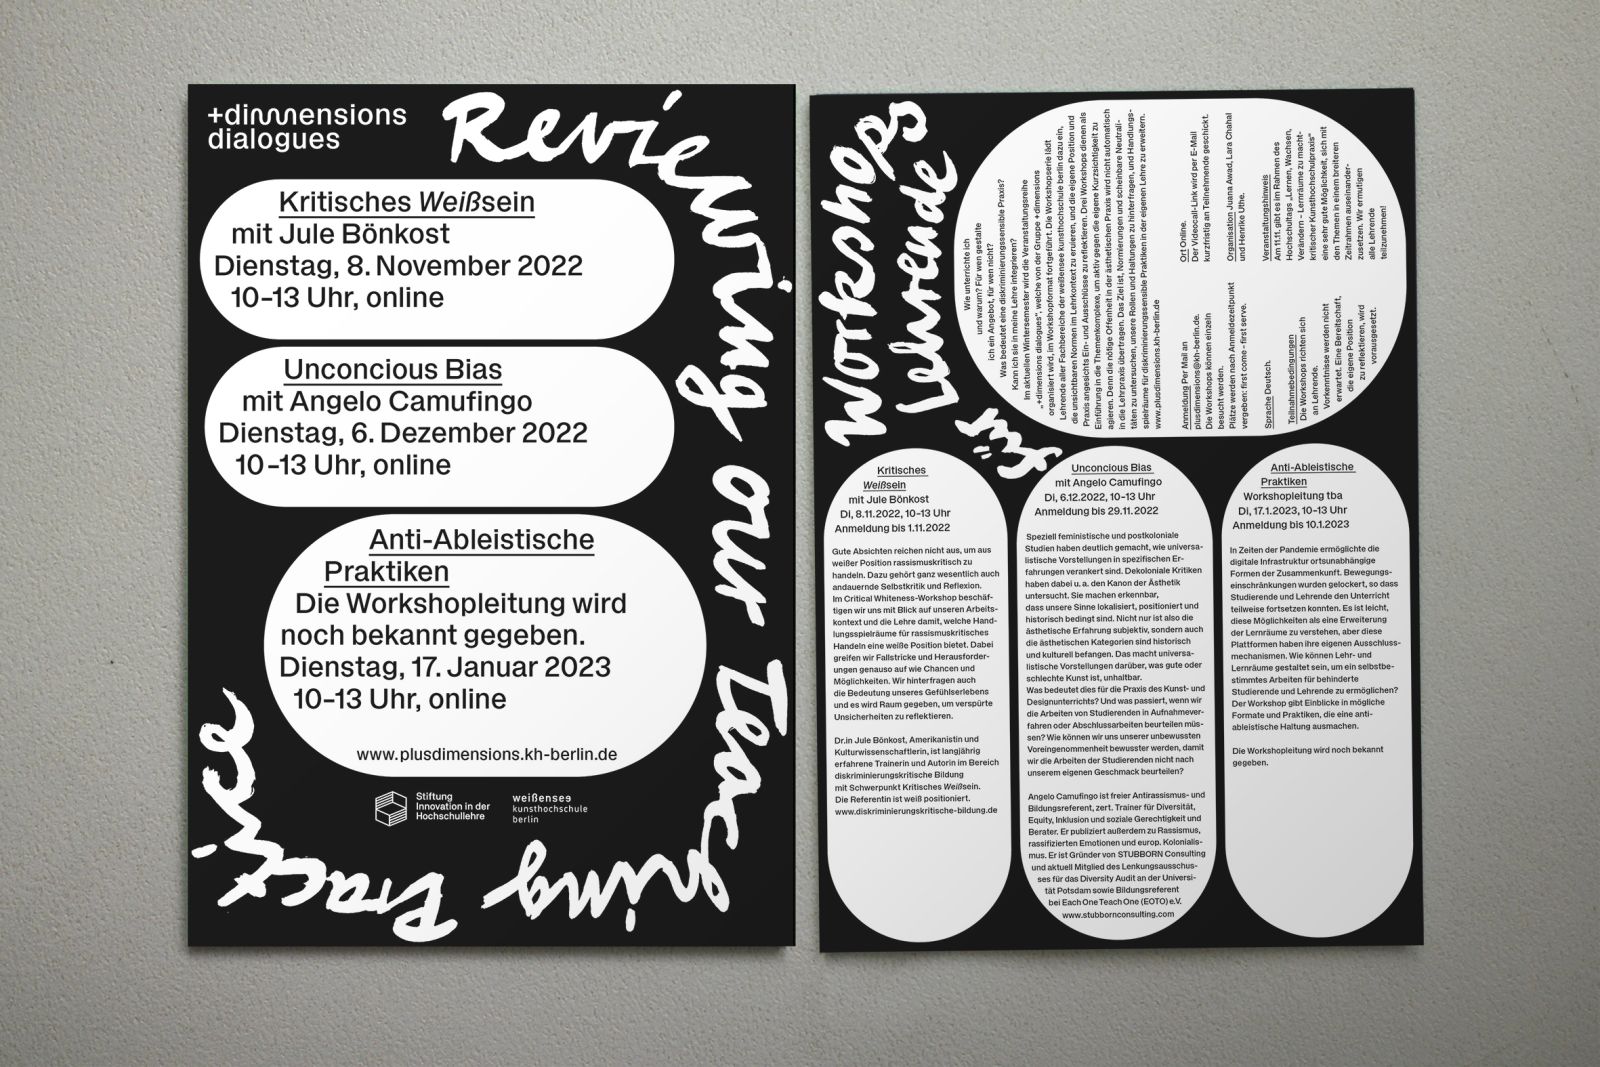 +dimensions
dialogues
Reviewing our Teaching Practice
Kritisches Weißsein
mit Jule Bönkost
Dienstag, 8. November 2022
10–13 Uhr, online
Unconcious Bias
mit Angelo Camufingo
Dienstag, 6. Dezember 2022
10–13 Uhr, online
Anti-Ableistische
Praktiken
Die Workshopleitung wird
noch bekannt gegeben.
Dienstag, 17. Januar 2023
10–13 Uhr, online
www.plusdimensions.kh-berlin.de
Stiftung
Innovation in der
Hochschullehre
weißensee
kunsthochschule
berlin
Workshops
für Lehrende
Wie unterrichte ich
und warum? Für wen gestalte
ich ein Angebot, für wen nicht?
Was bedeutet eine diskriminierungssensible Praxis?
Kann ich sie in meine Lehre integrieren?
Im aktuellen Wintersemester wird die Veranstaltungsreihe
„+dimensions dialogues“, welche von der Gruppe +dimensions
organisiert wird, im Workshopformat fortgeführt. Die Workshopserie lädt
Lehrende aller Fachbereiche der weißensee kunsthochschule berlin dazu ein,
die unsichtbaren Normen im Lehrkontext zu eruieren, und die eigene Position und
Praxis angesichts Ein- und Ausschlüsse zu reflektieren. Drei Workshops dienen als
Einführung in die Themenkomplexe, um aktiv gegen die eigene Kurzsichtigkeit zu
agieren. Denn die nötige Offenheit in der ästhetischen Praxis wird nicht automatisch
in die Lehrpraxis übertragen. Das Ziel ist, Normierungen und scheinbare Neutrali-
täten zu untersuchen, unsere Rollen und Haltungen zu hinterfragen, und Handlungs-
spielräume für diskriminierungssensible Praktiken in der eigenen Lehre zu erweitern.
www.plusdimensions.kh-berlin.de
Anmeldung Per Mail an
plusdimensions@kh-berlin.de.
Die Workshops können einzeln
besucht werden.
Plätze werden nach Anmeldezeitpunkt
vergeben: first come – first serve.
Sprache Deutsch.
Teilnahmebedingungen
Die Workshops richten sich
an Lehrende.
Vorkenntnisse werden nicht
erwartet. Eine Bereitschaft,
die eigene Position
zu reflektieren, wird
vorausgesetzt.
Ort Online.
Der Videocall-Link wird per E-Mail
kurzfristig an Teilnehmende geschickt.
Organisation Juana Awad, Lara Chahal
und Henrike Uthe.
Veranstaltungshinweis
Am 11.11. gibt es im Rahmen des
Hochschultags „Lernen, Wachsen,
Verändern – Lernräume zu macht-
kritischer Kunsthochschulpraxis“
eine sehr gute Möglichkeit, sich mit
den Themen in einem breiteren
Zeitrahmen auseinander-
zusetzen. Wir ermutigen
alle Lehrende
teilzunehmen!
Kritisches
Weißsein
mit Jule Bönkost
Di, 8.11.2022, 10–13 Uhr
Anmeldung bis 1.11.2022
Gute Absichten reichen nicht aus, um aus
weißer Position rassismuskritisch zu
handeln. Dazu gehört ganz wesentlich auch
andauernde Selbstkritik und Reflexion.
Im Critical Whiteness-Workshop beschäf-
tigen wir uns mit Blick auf unseren Arbeits-
kontext und die Lehre damit, welche Hand-
lungsspielräume für rassismuskritisches
Handeln eine weiße Position bietet. Dabei
greifen wir Fallstricke und Herausforder-
ungen genauso auf wie Chancen und
Möglichkeiten. Wir hinterfragen auch
die Bedeutung unseres Gefühlserlebens
und es wird Raum gegeben, um verspürte
Unsicherheiten zu reflektieren.
Dr.in Jule Bönkost, Amerikanistin und
Kulturwissenschaftlerin, ist langjährig
erfahrene Trainerin und Autorin im Bereich
diskriminierungskritische Bildung
mit Schwerpunkt Kritisches Weißsein.
Die Referentin ist weiß positioniert.
www.diskriminierungskritische-bildung.de
Unconcious Bias
mit Angelo Camufingo
Di, 6.12.2022, 10–13 Uhr
Anmeldung bis 29.11.2022
Speziell feministische und postkoloniale
Studien haben deutlich gemacht, wie universa-
listische Vorstellungen in spezifischen Er-
fahrungen verankert sind. Dekoloniale Kritiken
haben dabei u. a. den Kanon der Ästhetik
untersucht. Sie machen erkennbar,
dass unsere Sinne lokalisiert, positioniert und
historisch bedingt sind. Nicht nur ist also die
ästhetische Erfahrung subjektiv, sondern auch
die ästhetischen Kategorien sind historisch
und kulturell befangen. Das macht universa-
listische Vorstellungen darüber, was gute oder
schlechte Kunst ist, unhaltbar.
Was bedeutet dies für die Praxis des Kunst- und
Designunterrichts? Und was passiert, wenn wir
die Arbeiten von Studierenden in Aufnahmever-
fahren oder Abschlussarbeiten beurteilen müs-
sen? Wie können wir uns unserer unbewussten
Voreingenommenheit bewusster werden, damit
wir die Arbeiten der Studierenden nicht nach
unserem eigenen Geschmack beurteilen?
Angelo Camufingo ist freier Antirassismus- und
Bildungsreferent, zert. Trainer für Diversität,
Equity, Inklusion und soziale Gerechtigkeit und
Berater. Er publiziert außerdem zu Rassismus,
rassifizierten Emotionen und europ. Kolonialis-
mus. Er ist Gründer von STUBBORN Consulting
und aktuell Mitglied des Lenkungsausschus-
ses für das Diversity Audit an der Universi-
tät Potsdam sowie Bildungsreferent
bei Each One Teach One (EOTO) e.V.
www.stubbornconsulting.com
Anti-Ableistische
Praktiken
Workshopleitung tba
Di, 17.1.2023, 10–13 Uhr
Anmeldung bis 10.1.2023
In Zeiten der Pandemie ermöglichte die
digitale Infrastruktur ortsunabhängige
Formen der Zusammenkunft. Bewegungs-
einschränkungen wurden gelockert, so dass
Studierende und Lehrende den Unterricht
teilweise fortsetzen konnten. Es ist leicht,
diese Möglichkeiten als eine Erweiterung
der Lernräume zu verstehen, aber diese
Plattformen haben ihre eigenen Ausschluss-
mechanismen. Wie können Lehr- und
Lernräume gestaltet sein, um ein selbstbe-
stimmtes Arbeiten für behinderte
Studierende und Lehrende zu ermöglichen?
Der Workshop gibt Einblicke in mögliche
Formate und Praktiken, die eine anti-
ableistische Haltung ausmachen.
Die Workshopleitung wird noch bekannt
gegeben.